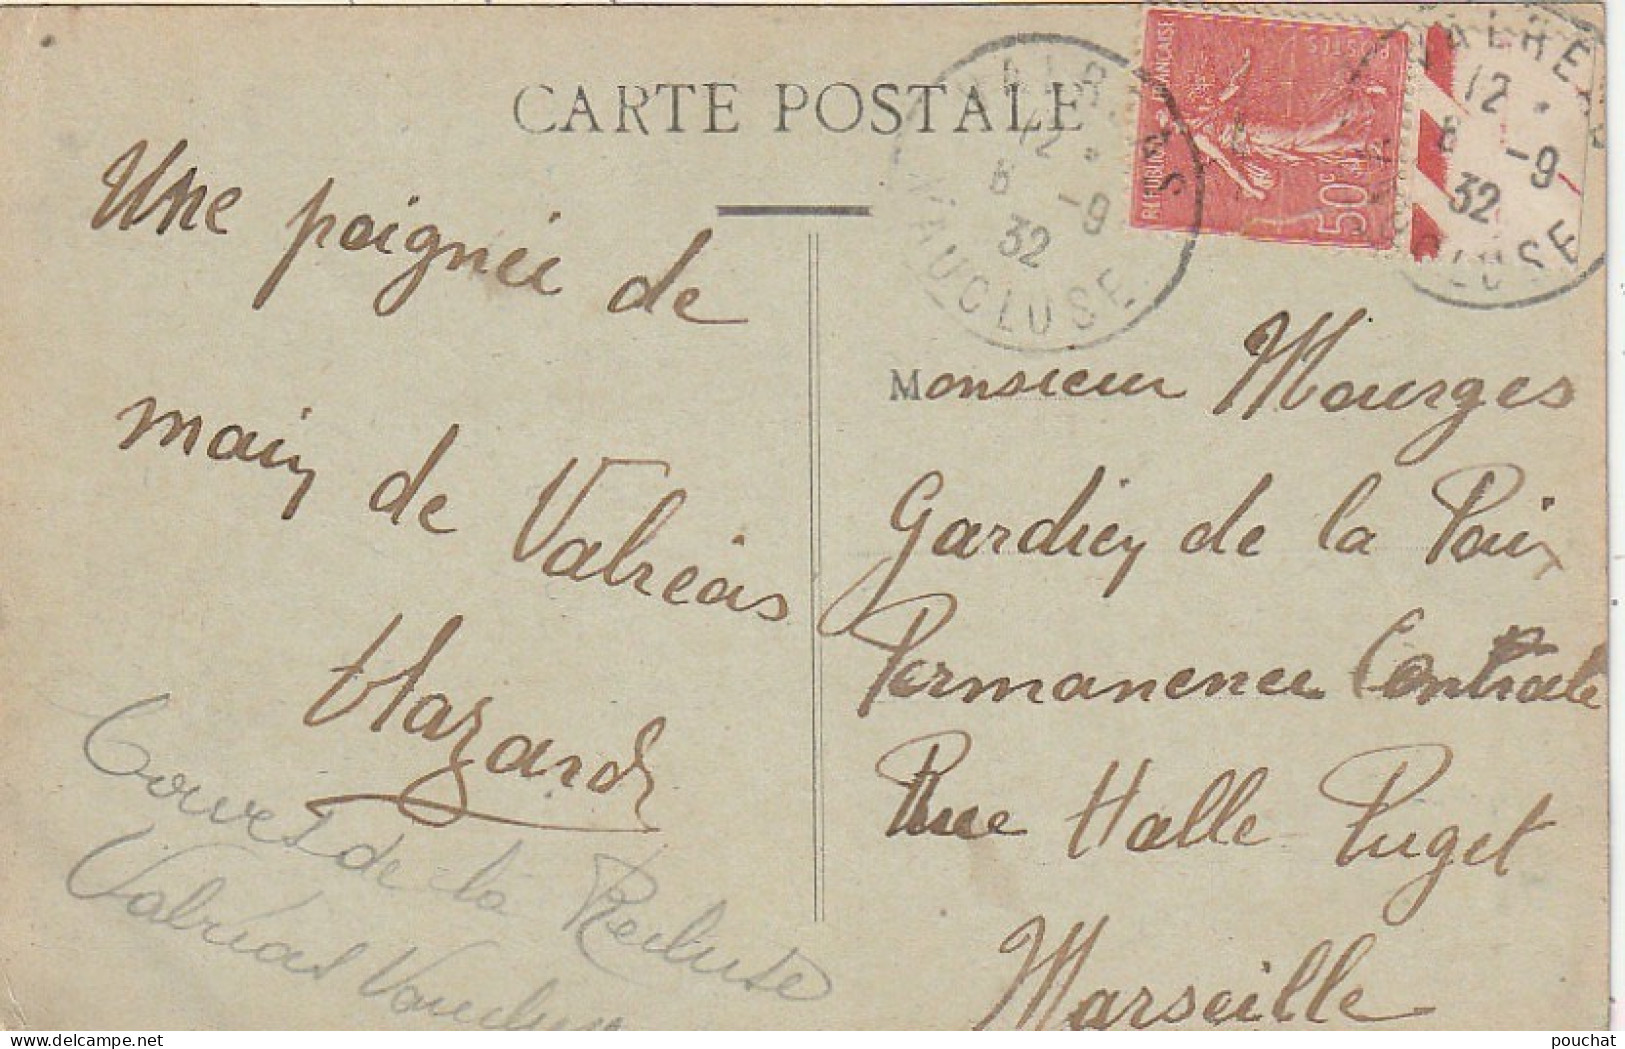 CARTE POSTALE
Une poignée de
main de Valréas
Hazard
de la Recluse
Valréas Vaucluse
VALRÉAS
12
8 -9
32
VAUCLUSE
RÉPUBLIQUE FRANÇAISE
POSTES
50c
VALRÉAS
12
8 -9
32
VAUCLUSE
Monsieur Mourges
Gardien de la Paix
Permanence Centrale
Rue Halle Puget
Marseille
pouchat